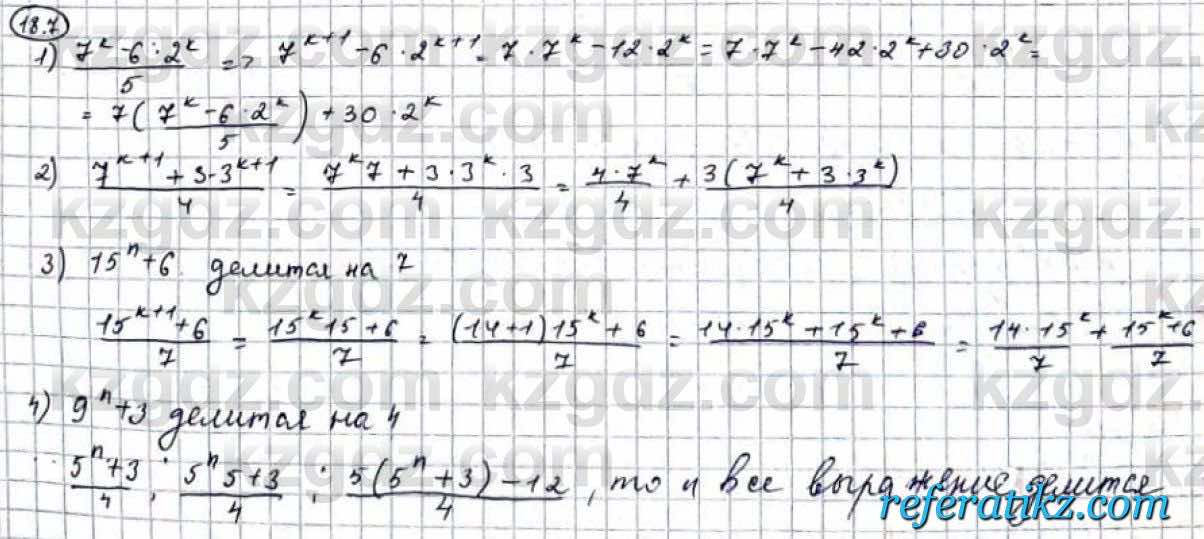 18.7
1) (7^k - 6 · 2^k)/5 => 7^(k+1) - 6 · 2^(k+1) = 7 · 7^k - 12 · 2^k = 7 · 7^k - 42 · 2^k + 30 · 2^k =
= 7((7^k - 6 · 2^k)/5) + 30 · 2^k
2) (7^(k+1) + 3 · 3^(k+1))/4 = (7^k 7 + 3 · 3^k · 3)/4 = (4 · 7^k)/4 + (3(7^k + 3 · 3^k))/4
3) 15^n + 6 делится на 7
(15^(k+1) + 6)/7 = (15^k 15 + 6)/7 = ((14+1)15^k + 6)/7 = (14 · 15^k + 15^k + 6)/7 = (14 · 15^k)/7 + (15^k + 6)/7
4) 9^n + 3 делится на 4
(5^n + 3)/4 ; (5^n 5 + 3)/4 ; (5(5^n + 3) - 12)/4 , то и все выражение делится
referatikz.com
kzgdz.com